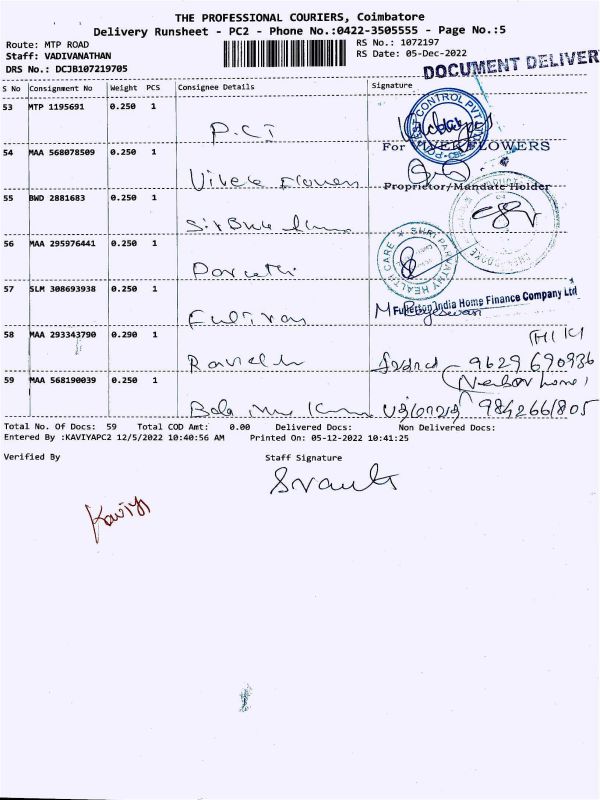 THE PROFESSIONAL COURIERS, Coimbatore
Delivery Runsheet - PC2 - Phone No.:0422-3505555 - Page No.:5
Route: MTP ROAD
RS No.: 1072197
Staff: VADIVANATHAN
RS Date: 05-Dec-2022
DRS No.: DCJB107219705
DOCUMENT DELIVER
S No Consignment No Weight PCS Consignee Details Signature
53 MTP 1195691 0.250 1
P.C.I
54 MAA 568078509 0.250 1
For FLOWERS
Vivek Flowers
Proprietor/Mandate Holder
55 BWD 2881683 0.250 1
56 MAA 295976441 0.250 1
SHRI PARVATHY HEALTH CARE
Parvathi
57 SLM 308693938 0.250 1
Fullerton India Home Finance Company Ltd
58 MAA 293343790 0.290 1
9629690936
59 MAA 568190039 0.250 1
Bala 9842661805
Total No. Of Docs: 59 Total COD Amt: 0.00 Delivered Docs: Non Delivered Docs:
Entered By :KAVIYAPC2 12/5/2022 10:40:56 AM Printed On: 05-12-2022 10:41:25
Verified By Staff Signature
Kaviya